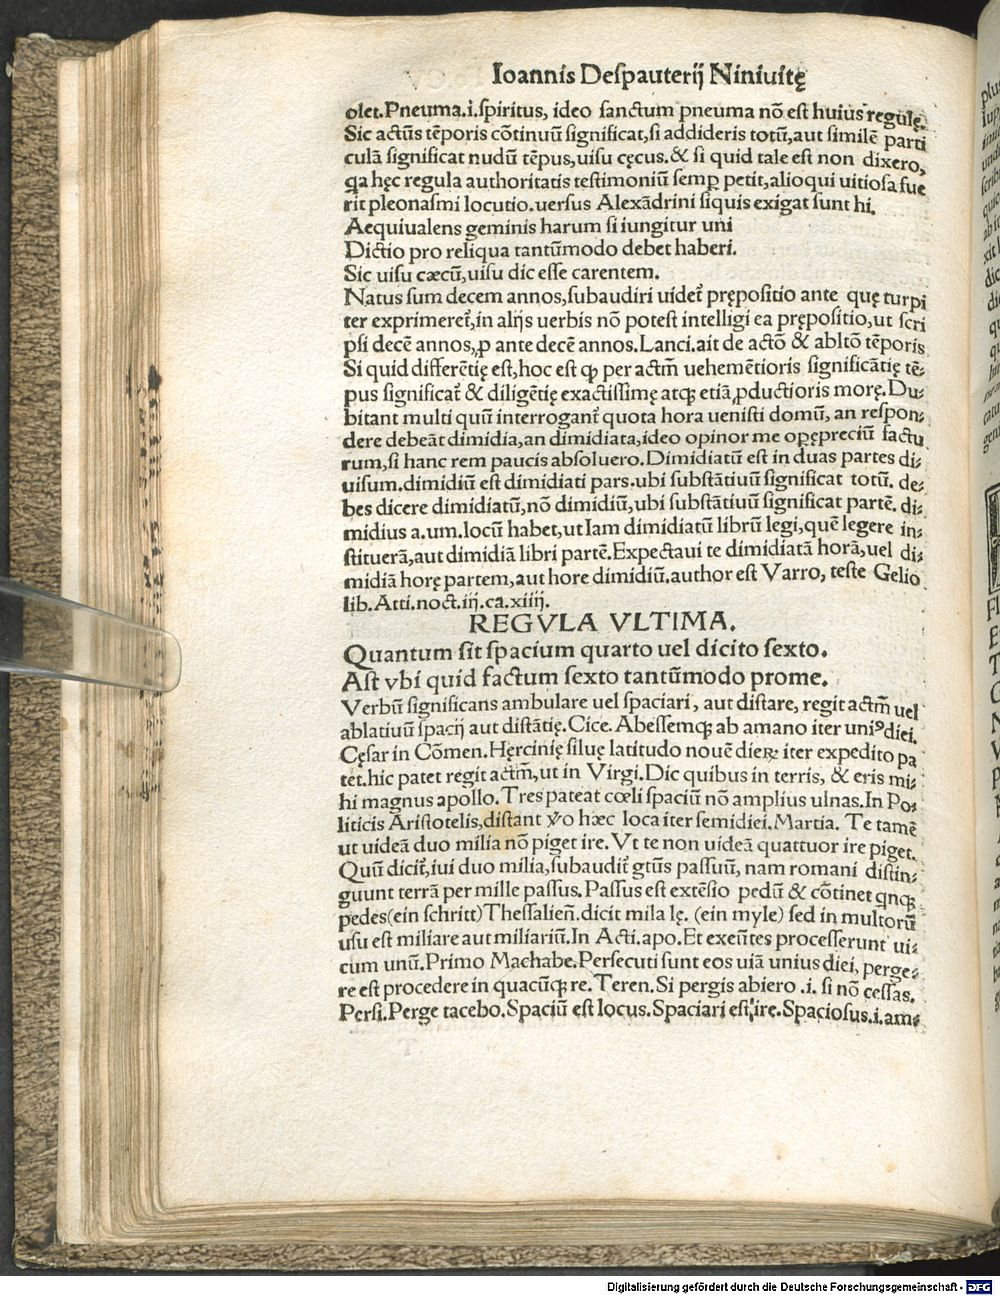 Ioannis Despauterij Niniuitę
olet.Pneuma.i.spiritus, ideo sanctum pneuma nō est huius regulę.
Sic actūs tēporis cōtinuū significat,si addideris totū,aut similē parti
culā significat nudū tēpus,uisu cęcus.& si quid tale est non dixero,
qa hęc regula authoritatis testimoniū semp petit,alioqui uitiosa fue
rit pleonasmi locutio.uersus Alexādrini siquis exigat sunt hi.
Aequiualens geminis harum si iungitur uni
Dictio pro reliqua tantūmodo debet haberi.
Sic uisu cæcū,uisu dic esse carentem.
Natus sum decem annos,subaudiri uidet̃ prępositio ante quę turpi
ter exprimeret̃,in alijs uerbis nō potest intelligi ea prępositio,ut scri
psi decē annos,ꝓ ante decē annos.Lanci.ait de actō & abltō tēporis
Si quid differētię est,hoc est ꝙ per actm̃ uehemētioris significātię tē⸗
pus significat̃ & diligētię exactissimę atqꝫ etiā ꝓductioris morę.Du⸗
bitant multi quū interrogant̃ quota hora uenisti domū, an respon⸗
dere debeāt dimidia,an dimidiata,ideo opinor me opępreciū factu
rum,si hanc rem paucis absoluero.Dimidiatū est in duas partes di⸗
uisum.dimidiū est dimidiati pars.ubi substātiuū significat totū. de⸗
bes dicere dimidiatū,nō dimidiū,ubi substātiuū significat partē. di⸗
midius a.um.locū habet,ut Iam dimidiatū librū legi,quē legere in⸗
stituerā,aut dimidiā libri partē.Expectaui te dimidiatā horā,uel di⸗
midiā horę partem,aut hore dimidiū.author est Varro, teste Gelio
lib.Atti.noct.iij.ca.xiiij.
REGVLA VLTIMA.
Quantum sit spacium quarto uel dicito sexto.
Ast vbi quid factum sexto tantūmodo prome.
Verbū significans ambulare uel spaciari, aut distare, regit actm̃ uel
ablatiuū spacij aut distātię.Cice.Abessemqꝫ ab amano iter uniꝰ diei.
Cęsar in Cōmen.Hęrcinię siluę latitudo nouē dieꝝ iter expedito pa
tet.hic patet regit actm̃,ut in Virgi.Dic quibus in terris, & eris mi⸗
hi magnus apollo.Tres pateat cœli spaciū nō amplius ulnas.In Po⸗
liticis Aristotelis,distant ꝟo hæc loca iter semidiei.Martia. Te tamē
ut uideā duo milia nō piget ire.Vt te non uideā quattuor ire piget.
Quū dicit̃,iui duo milia,subaudit̃ gtūs passuū, nam romani distin⸗
guunt terrā per mille passus.Passus est extēsio pedū & cōtinet qnqꝫ
pedes(ein schritt)Thessalień.dicit mila lę. (ein myle) sed in multorū
usu est miliare aut miliariū.In Acti.apo.Et exeūtes processerunt ui⸗
cum unū.Primo Machabe.Persecuti sunt eos uiā unius diei, perge⸗
re est procedere in quacūqꝫ re. Teren.Si pergis abiero .i. si nō cessas.
Persi.Perge tacebo.Spaciū est locus.Spaciari est ire.Spaciosus.i.am⸗
Digitalisierung gefördert durch die Deutsche Forschungsgemeinschaft - DFG